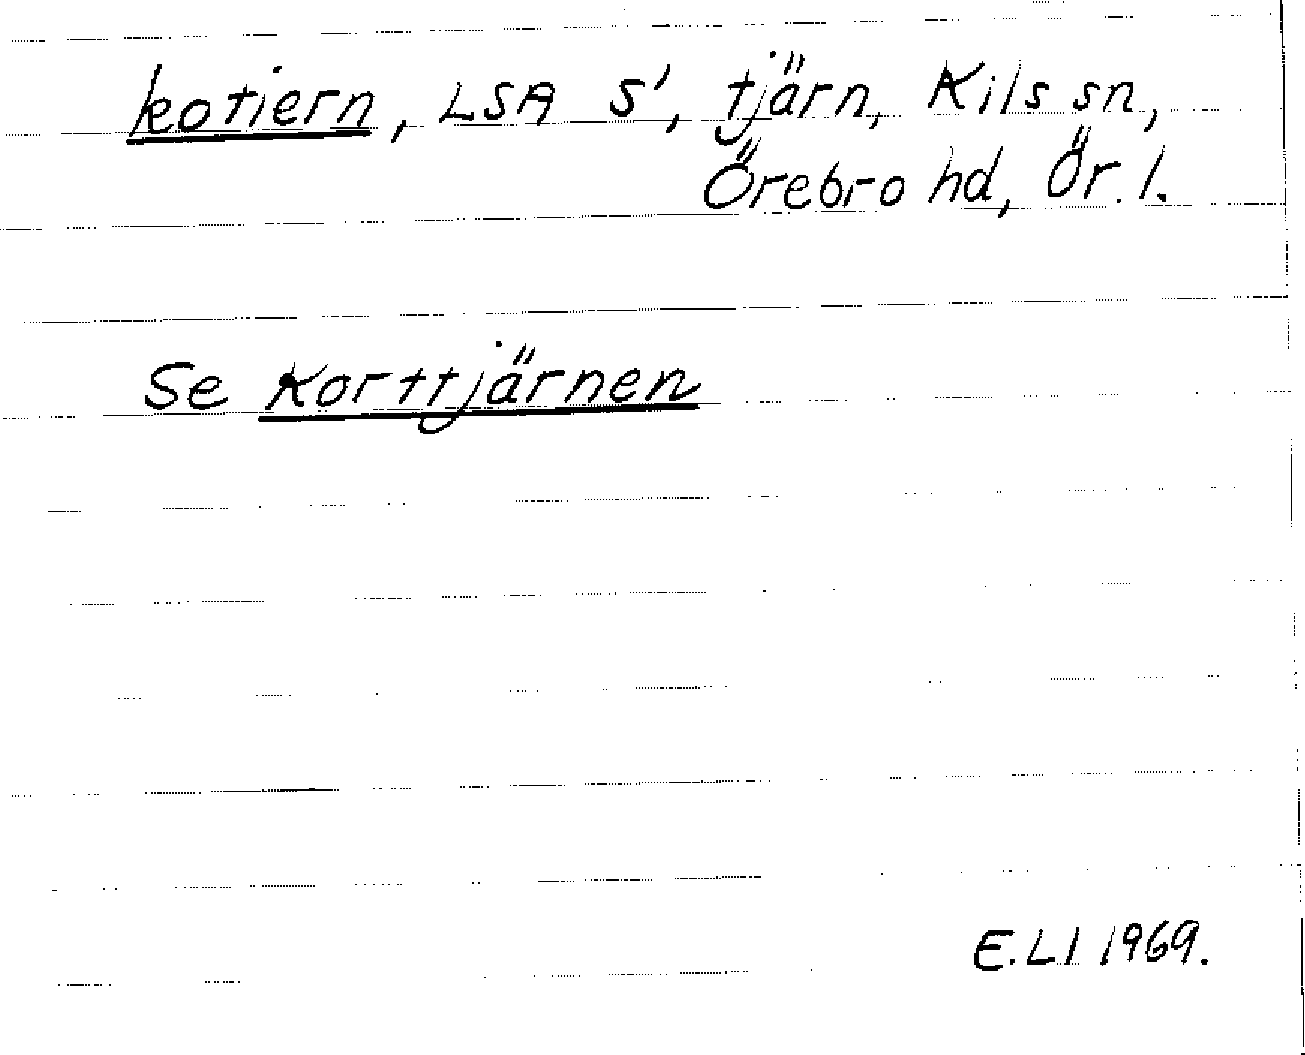 kotiern, LSA S', tjärn, Kils sn,
Örebro hd, Ör. l.
Se Korttjärnen
E.LI 1969.